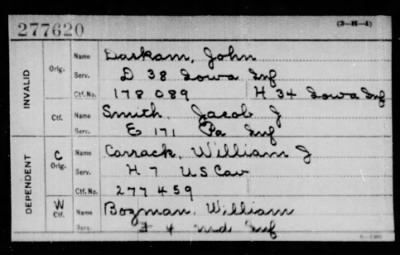 277620
(3-H-4)
INVALID
Orig.
Name Darkam, John
Serv. D 38 Iowa Inf
Ctf. No. 178089 H 34 Iowa Inf
Ctf.
Name Smith, Jacob J
Serv. E 171 Pa Inf
DEPENDENT
C Orig.
Name Carrack, William J
Serv. H 7 US Cav
Ctf. No. 277459
W Ctf.
Name Bozman, William
Serv. 4 Md Inf